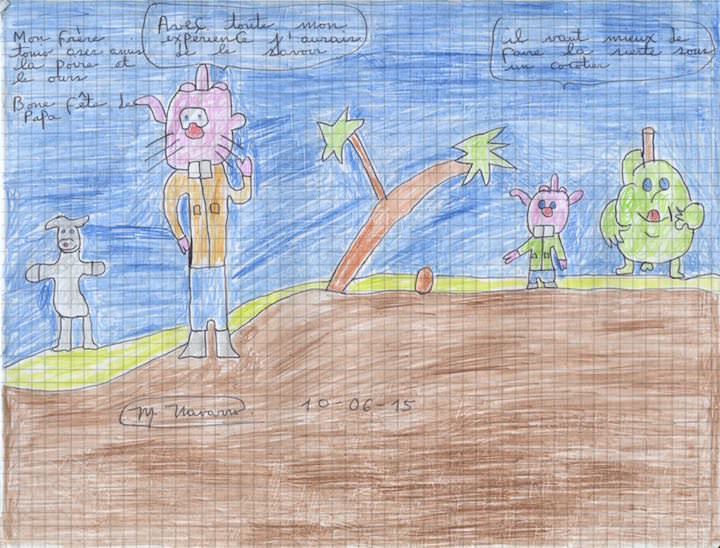 Mon frère
tomo faser anus
la poire et
le ours
Bone fête de
Papa
Avec toute mon
expérience j'aurais
dû le savoir
il vaut mieux de
faire la sieste sous
un cocotier
M Navarro
10-06-15